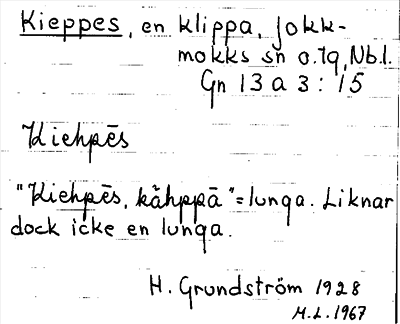 Kieppes, en klippa, Jokk-
mokks sn o. tg, Nb.l.
Gn 13 a 3 : 15
Kiehpēs
"Kiehpēs, kåhppā" = lunga. Liknar
dock icke en lunga.
H. Grundström 1928
M.L. 1967